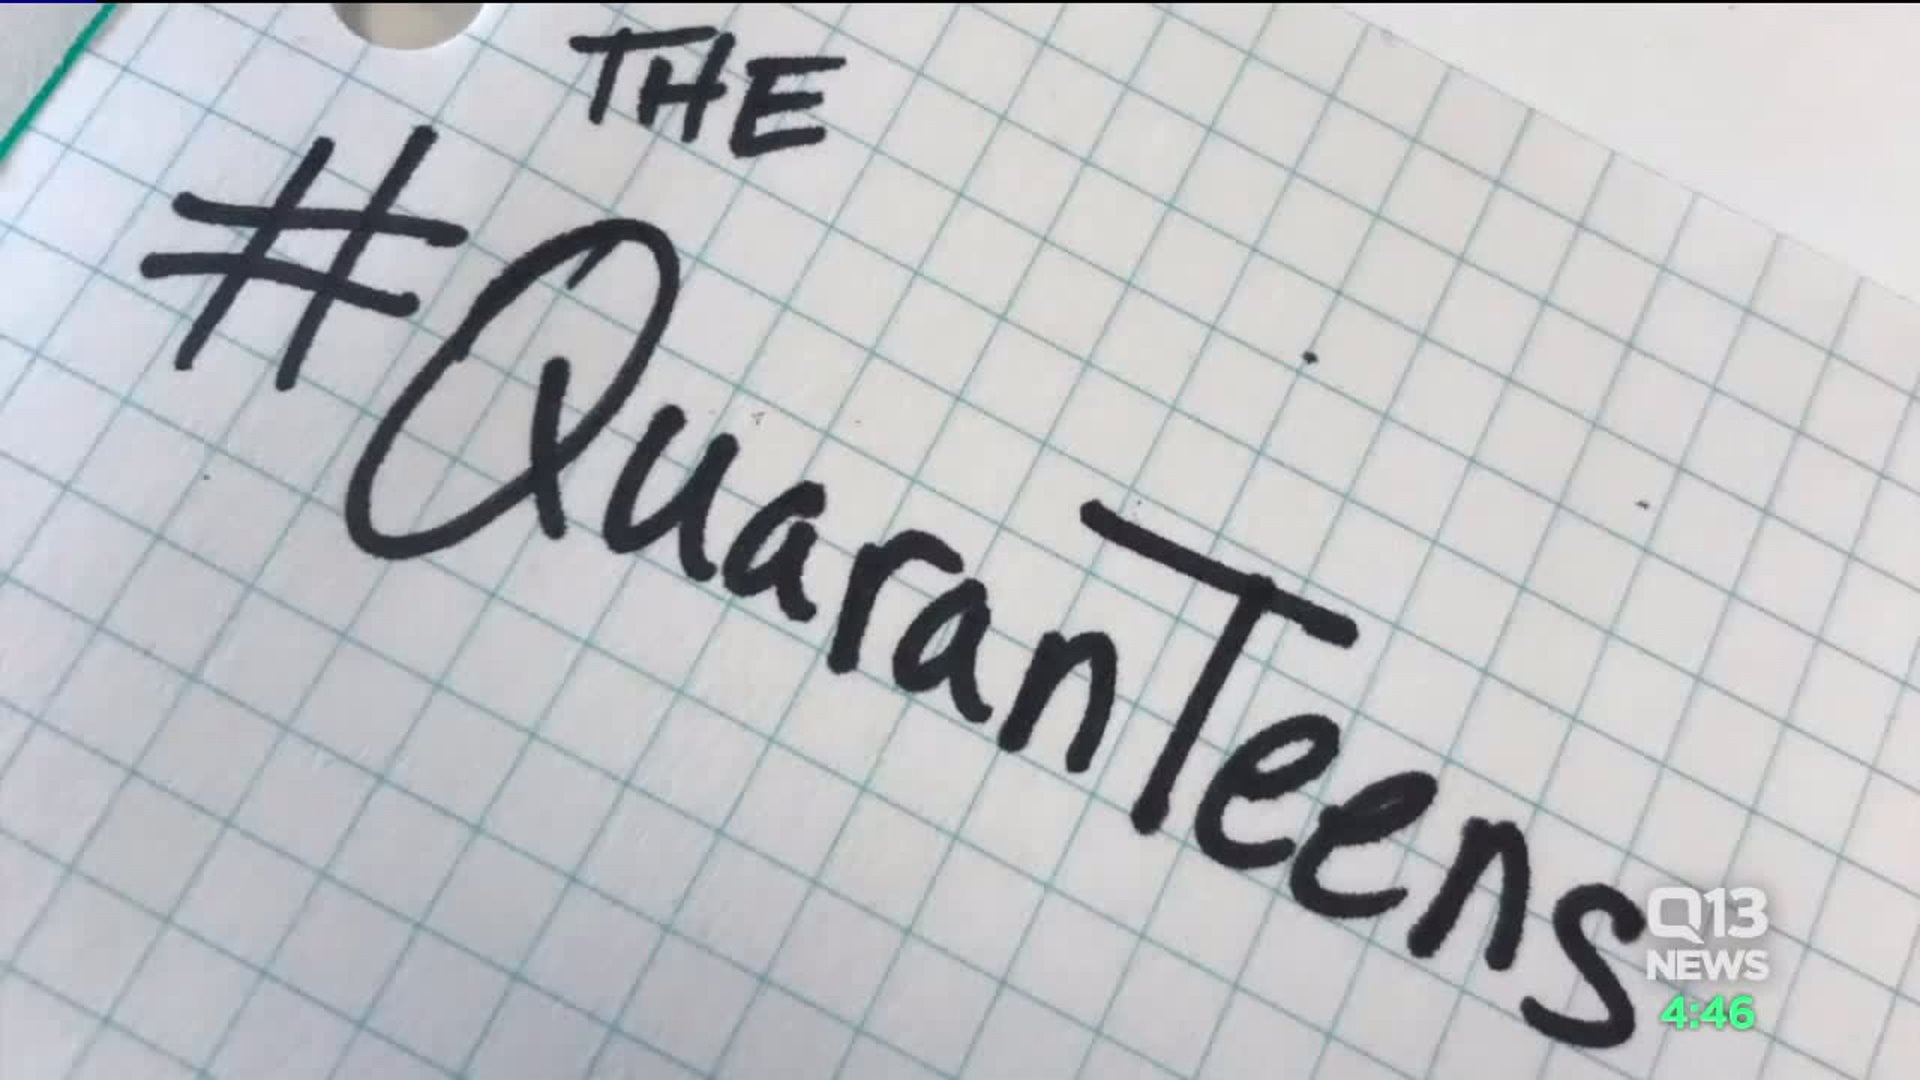 THE
#QuaranTeens
Q13
NEWS
4:46